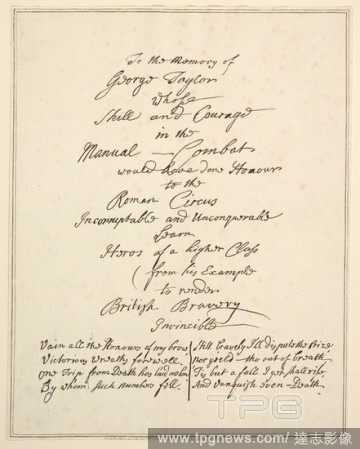 To the Memory of
George Taylor
whose
Skill and Courage
in the
Manual — Combat
would have done Honour
to the
Roman Circus
Incorruptable and Unconquerable
Learn
Heros of a higher Class
(from his Example
to render
British Bravery
Invincible
Vain all the Honours of my brow
Victorious Wreaths farewell
One Trip from Death has laid me low
By whom such numbers fell.
Still bravely I'll dispute the Prize
nor yield — tho' out of breath
Tis but a fall I yet shall rise
And Vanquish even — Death.
TPG
www.tpgnews.com/達志影像